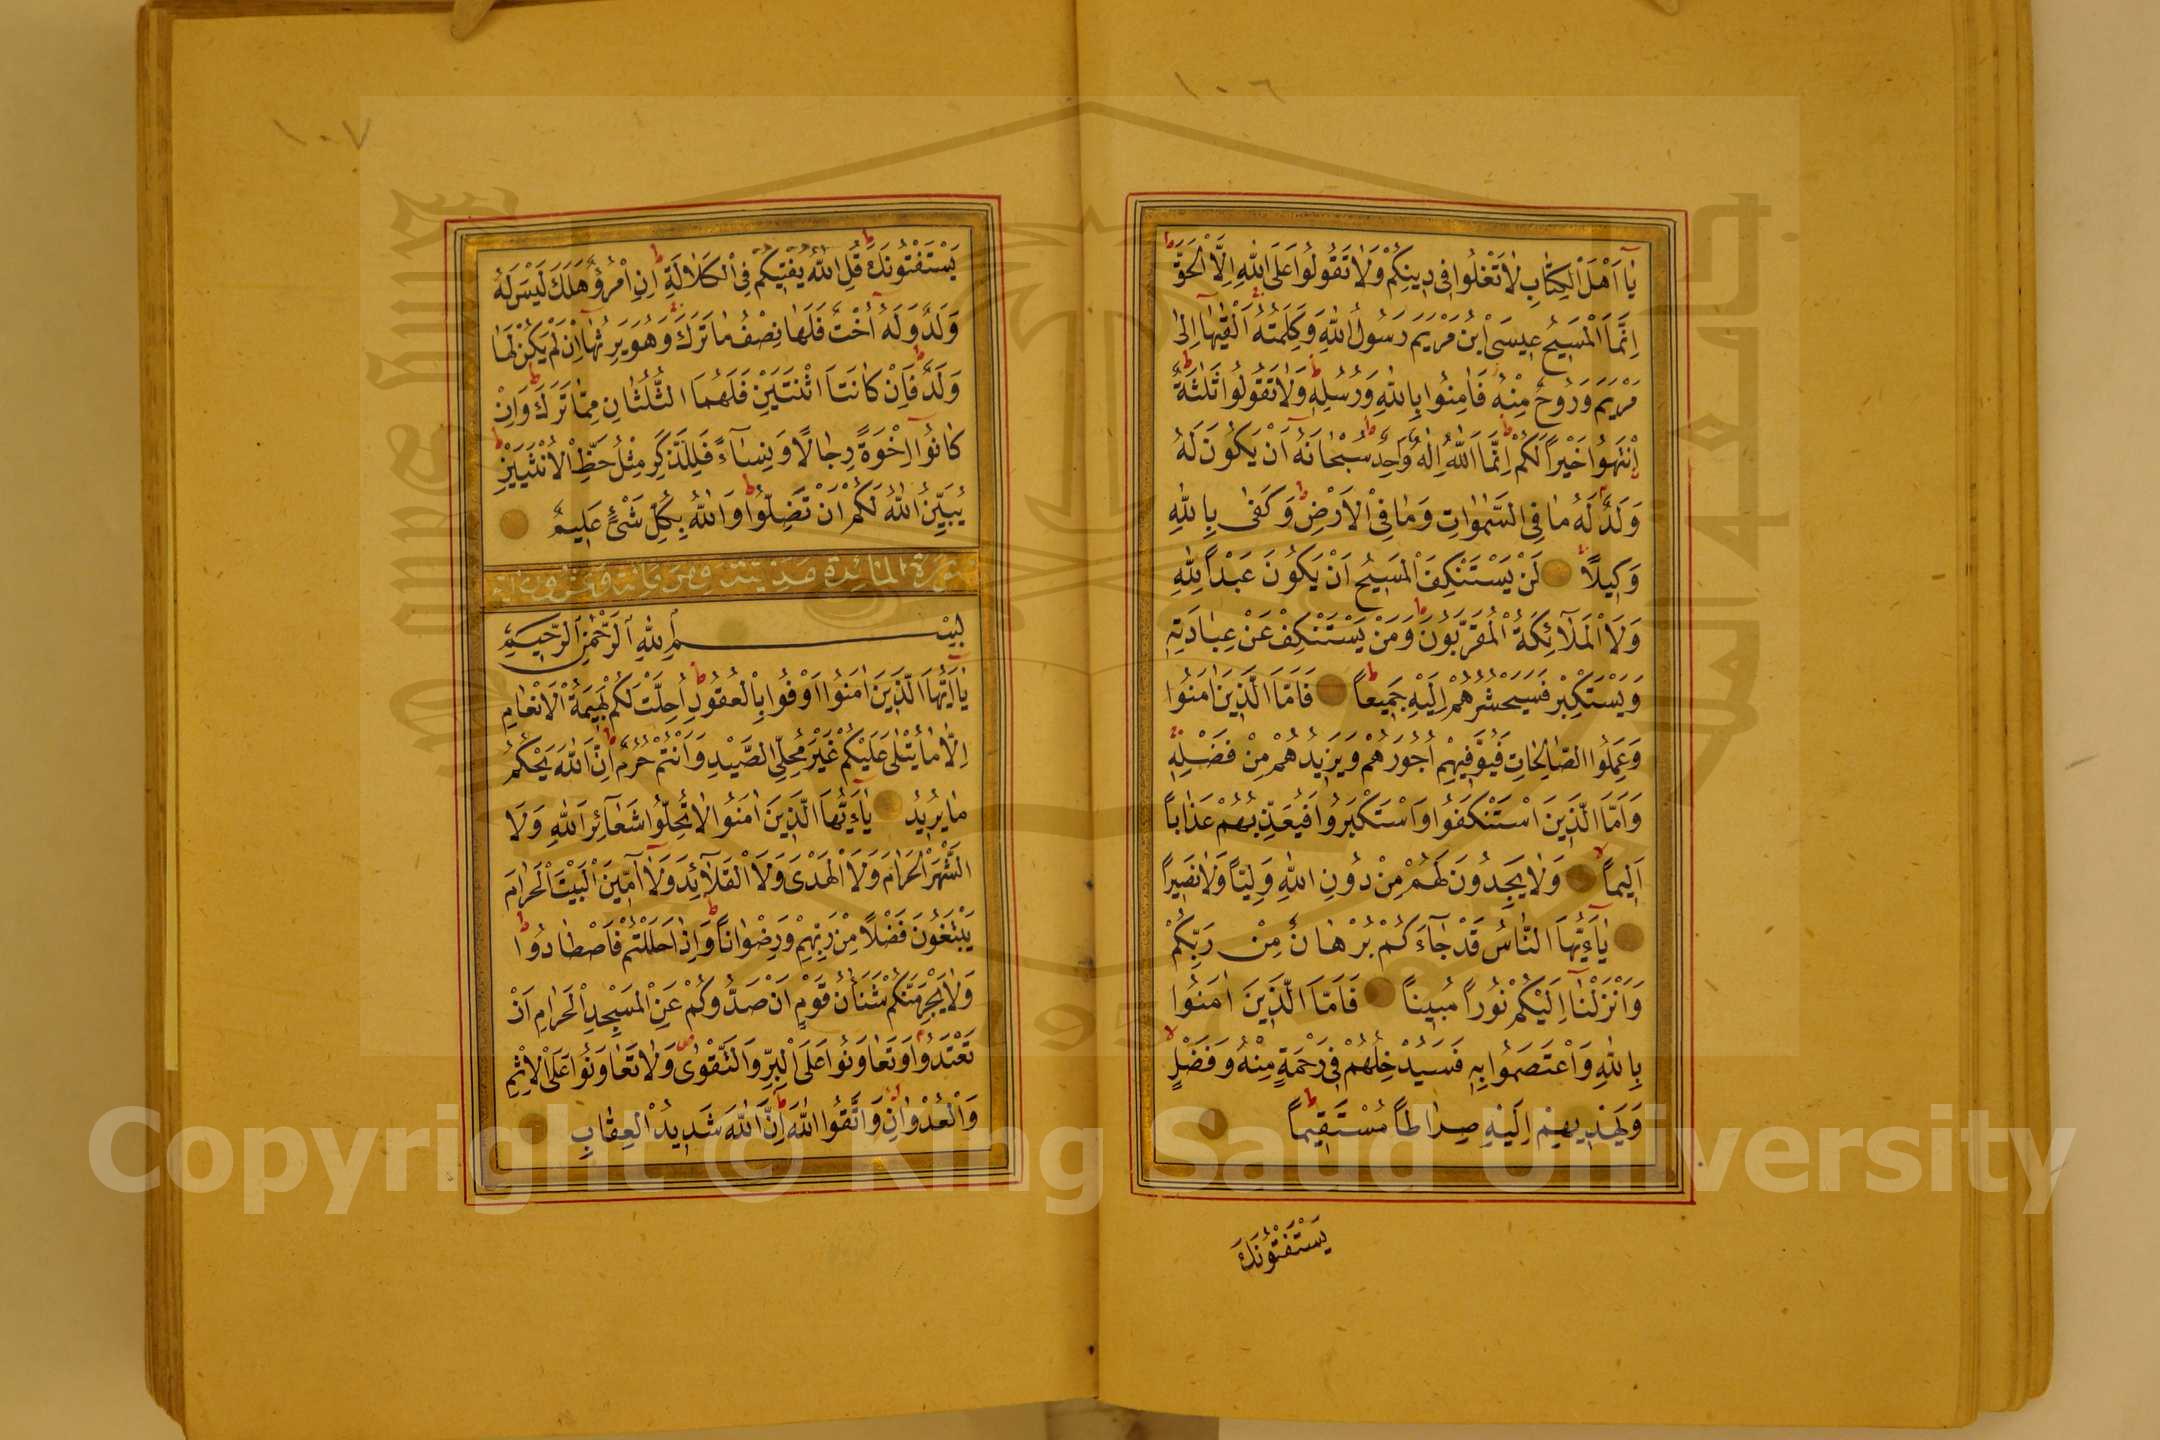 ١٠٦
يَا اَهْلَ الْكِتَابِ لَا تَغْلُوا فِى دِينِكُمْ وَلَا تَقُولُوا عَلَى اللّٰهِ اِلَّا الْحَقَّ
اِنَّمَا الْمَسِيحُ عِيسَى ابْنُ مَرْيَمَ رَسُولُ اللّٰهِ وَكَلِمَتُهُ اَلْقٰيهَا اِلٰى
مَرْيَمَ وَرُوحٌ مِنْهُ فَاٰمِنُوا بِاللّٰهِ وَرُسُلِهِ وَلَا تَقُولُوا ثَلٰثَةٌ
اِنْتَهُوا خَيْرًا لَكُمْ اِنَّمَا اللّٰهُ اِلٰهٌ وَاحِدٌ سُبْحَانَهُ اَنْ يَكُونَ لَهُ
وَلَدٌ لَهُ مَا فِى السَّمٰوَاتِ وَمَا فِى الْاَرْضِ وَكَفٰى بِاللّٰهِ
وَكِيلًا لَنْ يَسْتَنْكِفَ الْمَسِيحُ اَنْ يَكُونَ عَبْدًا لِلّٰهِ
وَلَا الْمَلٰٓائِكَةُ الْمُقَرَّبُونَ وَمَنْ يَسْتَنْكِفْ عَنْ عِبَادَتِهِ
وَيَسْتَكْبِرْ فَسَيَحْشُرُهُمْ اِلَيْهِ جَمِيعًا فَاَمَّا الَّذِينَ اٰمَنُوا
وَعَمِلُوا الصَّالِحَاتِ فَيُوَفِّيهِمْ اُجُورَهُمْ وَيَزِيدُهُمْ مِنْ فَضْلِهِ
وَاَمَّا الَّذِينَ اسْتَنْكَفُوا وَاسْتَكْبَرُوا فَيُعَذِّبُهُمْ عَذَابًا
اَلِيمًا وَلَا يَجِدُونَ لَهُمْ مِنْ دُونِ اللّٰهِ وَلِيًّا وَلَا نَصِيرًا
يَا ءَيُّهَا النَّاسُ قَدْ جَآءَكُمْ بُرْهَانٌ مِنْ رَبِّكُمْ
وَاَنْزَلْنَا اِلَيْكُمْ نُورًا مُبِينًا فَاَمَّا الَّذِينَ اٰمَنُوا
بِاللّٰهِ وَاعْتَصَمُوا بِهِ فَسَيُدْخِلُهُمْ فِى رَحْمَةٍ مِنْهُ وَفَضْلٍ
وَيَهْدِيهِمْ اِلَيْهِ صِرَاطًا مُسْتَقِيمًا
يَسْتَفْتُونَكَ
١٠٧
يَسْتَفْتُونَكَ قُلِ اللّٰهُ يُفْتِيكُمْ فِى الْكَلَالَةِ اِنِ امْرُؤٌ هَلَكَ لَيْسَ لَهُ
وَلَدٌ وَلَهُ اُخْتٌ فَلَهَا نِصْفُ مَا تَرَكَ وَهُوَ يَرِثُهَا اِنْ لَمْ يَكُنْ لَهَا
وَلَدٌ فَاِنْ كَانَتَا اثْنَتَيْنِ فَلَهُمَا الثُّلُثَانِ مِمَّا تَرَكَ وَاِنْ
كَانُوا اِخْوَةً رِجَالًا وَنِسَآءً فَلِلذَّكَرِ مِثْلُ حَظِّ الْاُنْثَيَيْنِ
يُبَيِّنُ اللّٰهُ لَكُمْ اَنْ تَضِلُّوا وَاللّٰهُ بِكُلِّ شَىْءٍ عَلِيمٌ
سورة المائدة مدنية وهى مائة وعشرون اية
بِسْمِ اللّٰهِ الرَّحْمٰنِ الرَّحِيمِ
يَا اَيُّهَا الَّذِينَ اٰمَنُوا اَوْفُوا بِالْعُقُودِ اُحِلَّتْ لَكُمْ بَهِيمَةُ الْاَنْعَامِ
اِلَّا مَا يُتْلٰى عَلَيْكُمْ غَيْرَ مُحِلِّى الصَّيْدِ وَاَنْتُمْ حُرُمٌ اِنَّ اللّٰهَ يَحْكُمُ
مَا يُرِيدُ يَا ءَيُّهَا الَّذِينَ اٰمَنُوا لَا تُحِلُّوا شَعَآئِرَ اللّٰهِ وَلَا
الشَّهْرَ الْحَرَامَ وَلَا الْهَدْىَ وَلَا الْقَلَآئِدَ وَلَا آمِّينَ الْبَيْتَ الْحَرَامَ
يَبْتَغُونَ فَضْلًا مِنْ رَبِّهِمْ وَرِضْوَانًا وَاِذَا حَلَلْتُمْ فَاصْطَادُوا
وَلَا يَجْرِمَنَّكُمْ شَنَاٰنُ قَوْمٍ اَنْ صَدُّوكُمْ عَنِ الْمَسْجِدِ الْحَرَامِ اَنْ
تَعْتَدُوا وَتَعَاوَنُوا عَلَى الْبِرِّ وَالتَّقْوٰى وَلَا تَعَاوَنُوا عَلَى الْاِثْمِ
وَالْعُدْوَانِ وَاتَّقُوا اللّٰهَ اِنَّ اللّٰهَ شَدِيدُ الْعِقَابِ
Copyright © King Saud University